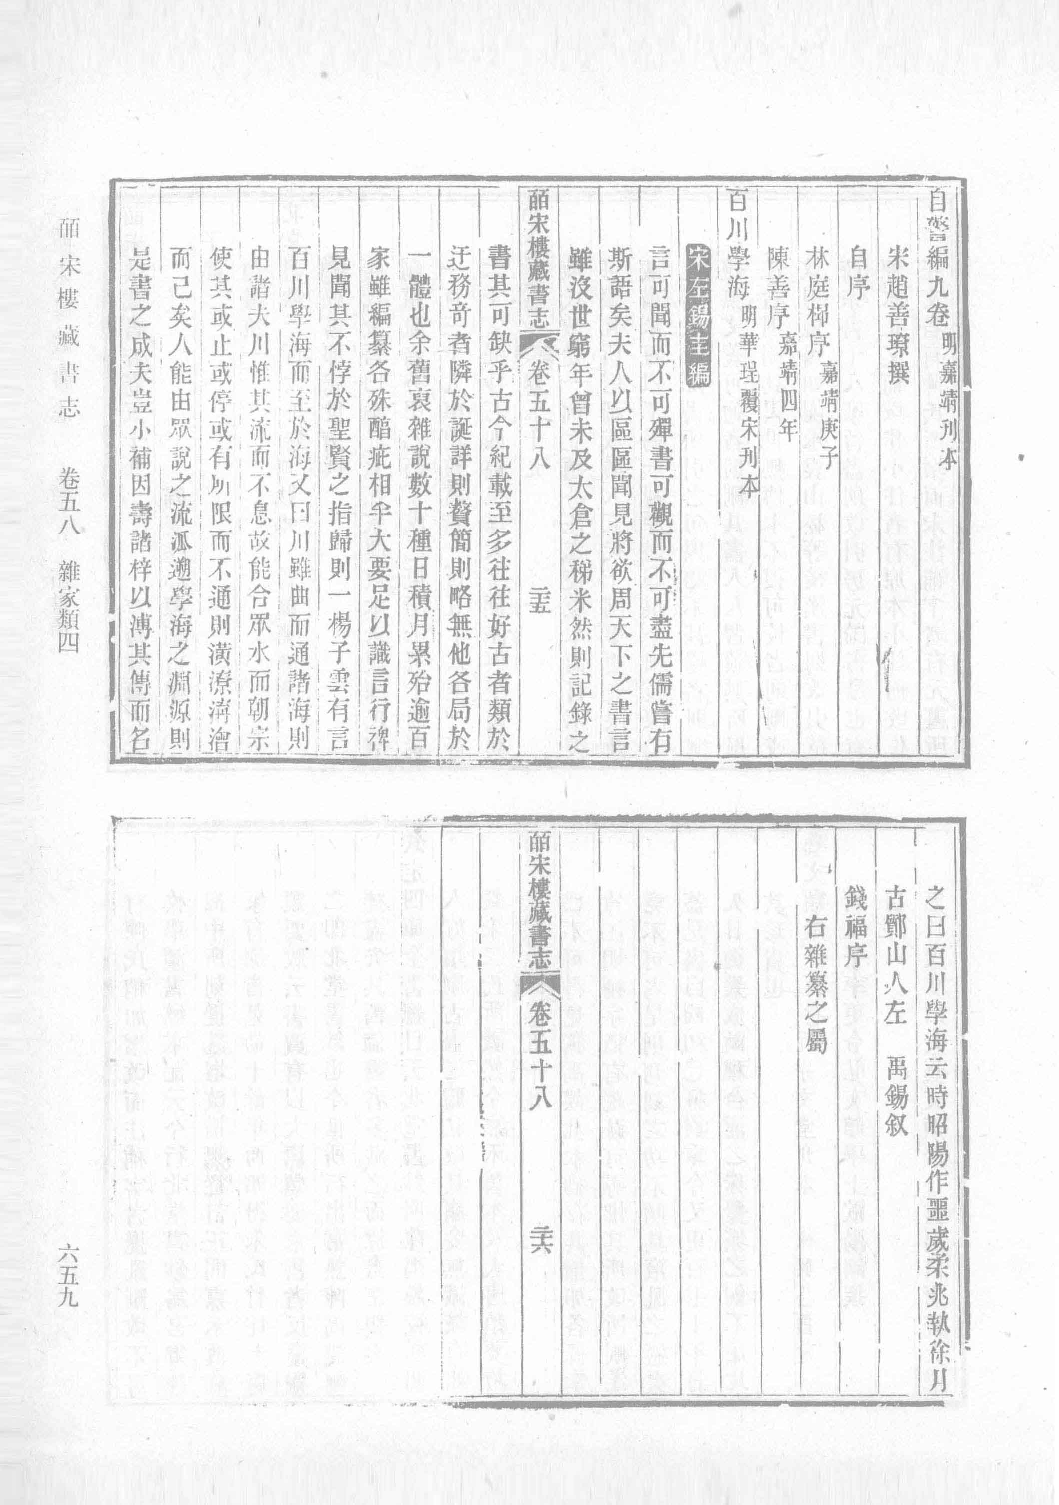 自警編九卷 明嘉靖刋本
宋趙善璙撰
自序
林庭㭿序 嘉靖庚子
陳善序 嘉靖四年
百川學海 明華珵覆宋刋本
宋左錫圭編
言可聞而不可殫書可觀而不可盡先儒嘗有
斯語矣夫人以區區聞見將欲周天下之書言
雖没世窮年曾未及太倉之稊米然則記錄之
皕宋樓藏書志 卷五十八 二十五
書其可缺乎古今紀載至多往往好古者類於
迂務竒者隣於誕詳則贅簡則略無他各局於
一體也余舊裒雜說數十種日積月累殆逾百
家雖編纂各殊醇疵相半大要足以識言行禆
見聞其不悖於聖賢之指歸則一楊子雲有言
百川學海而至於海又曰川雖曲而通諸海則
由諸夫川惟其流而不息故能合眾水而朝宗
使其或止或停或有所限而不通則潢潦溝澮
而已矣人能由眾說之流泝遡學海之淵源則
是書之成夫豈小補因壽諸梓以溥其傳而名
之曰百川學海云時昭陽作噩歲柔兆執徐月
古鄮山人左 禹錫叙
錢福序
右雜纂之屬
皕宋樓藏書志 卷五十八 二十六
皕宋樓藏書志 卷五八 雜家類四
六五九